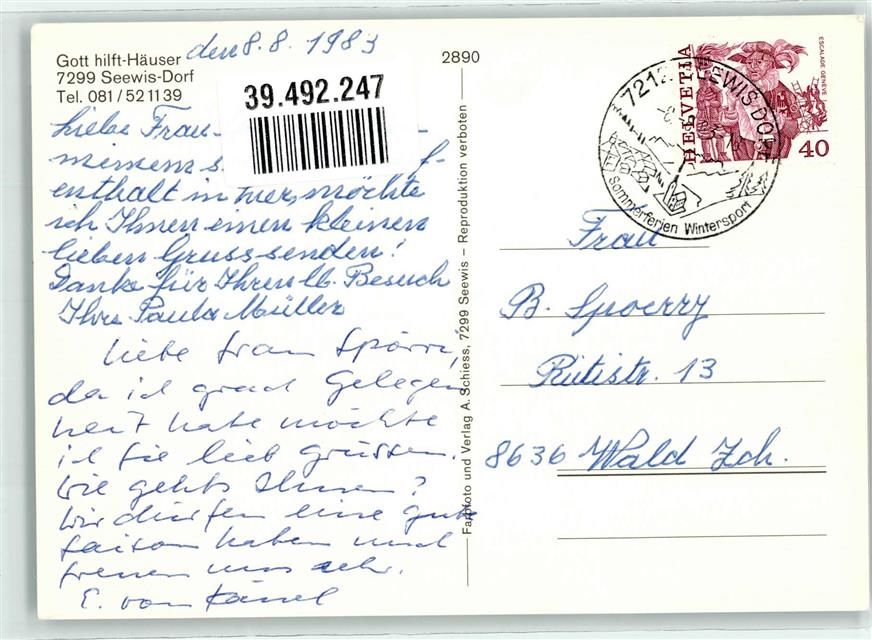 Gott hilft-Häuser
7299 Seewis-Dorf
Tel. 081/521139
den 8.8.1983
39.492.247
Liebe Frau
enthalt in hier, möchte
ich Ihnen einen kleinen
lieben Gruss senden!
Danke für Ihren lb. Besuch
Ihre Paula Müller
Liebe Frau Spörri,
da ich grad Gelegen
heit habe möchte
ich Sie lieb grüssen.
Wie gehts Ihnen?
Wir dürfen eine gute
Saison haben und
freuen uns sehr.
E. von Känel
2890
Farbfoto und Verlag A. Schiess, 7299 Seewis – Reproduktion verboten
7212 SEEWIS DORF
Sommerferien Wintersport
HELVETIA
ESCALADE GENÈVE
40
Frau
B. Spoerry
Rütistr. 13
8636 Wald Zch.